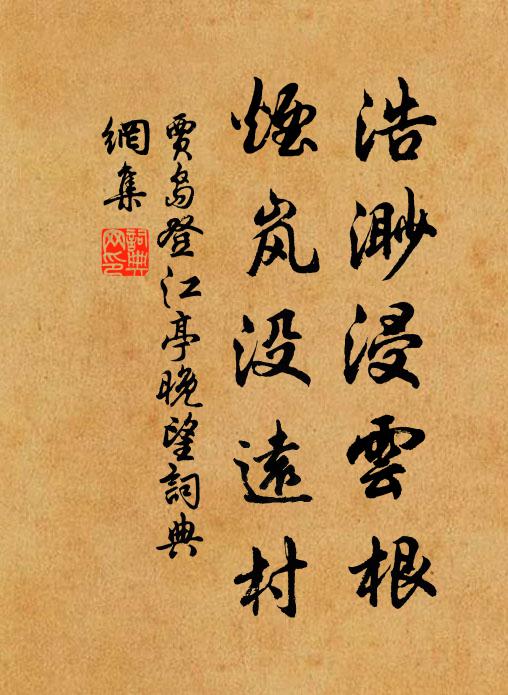 浩渺浸雲根
煙岚没遠村
賈島登江亭晚望詞典
網集
詞典
网印